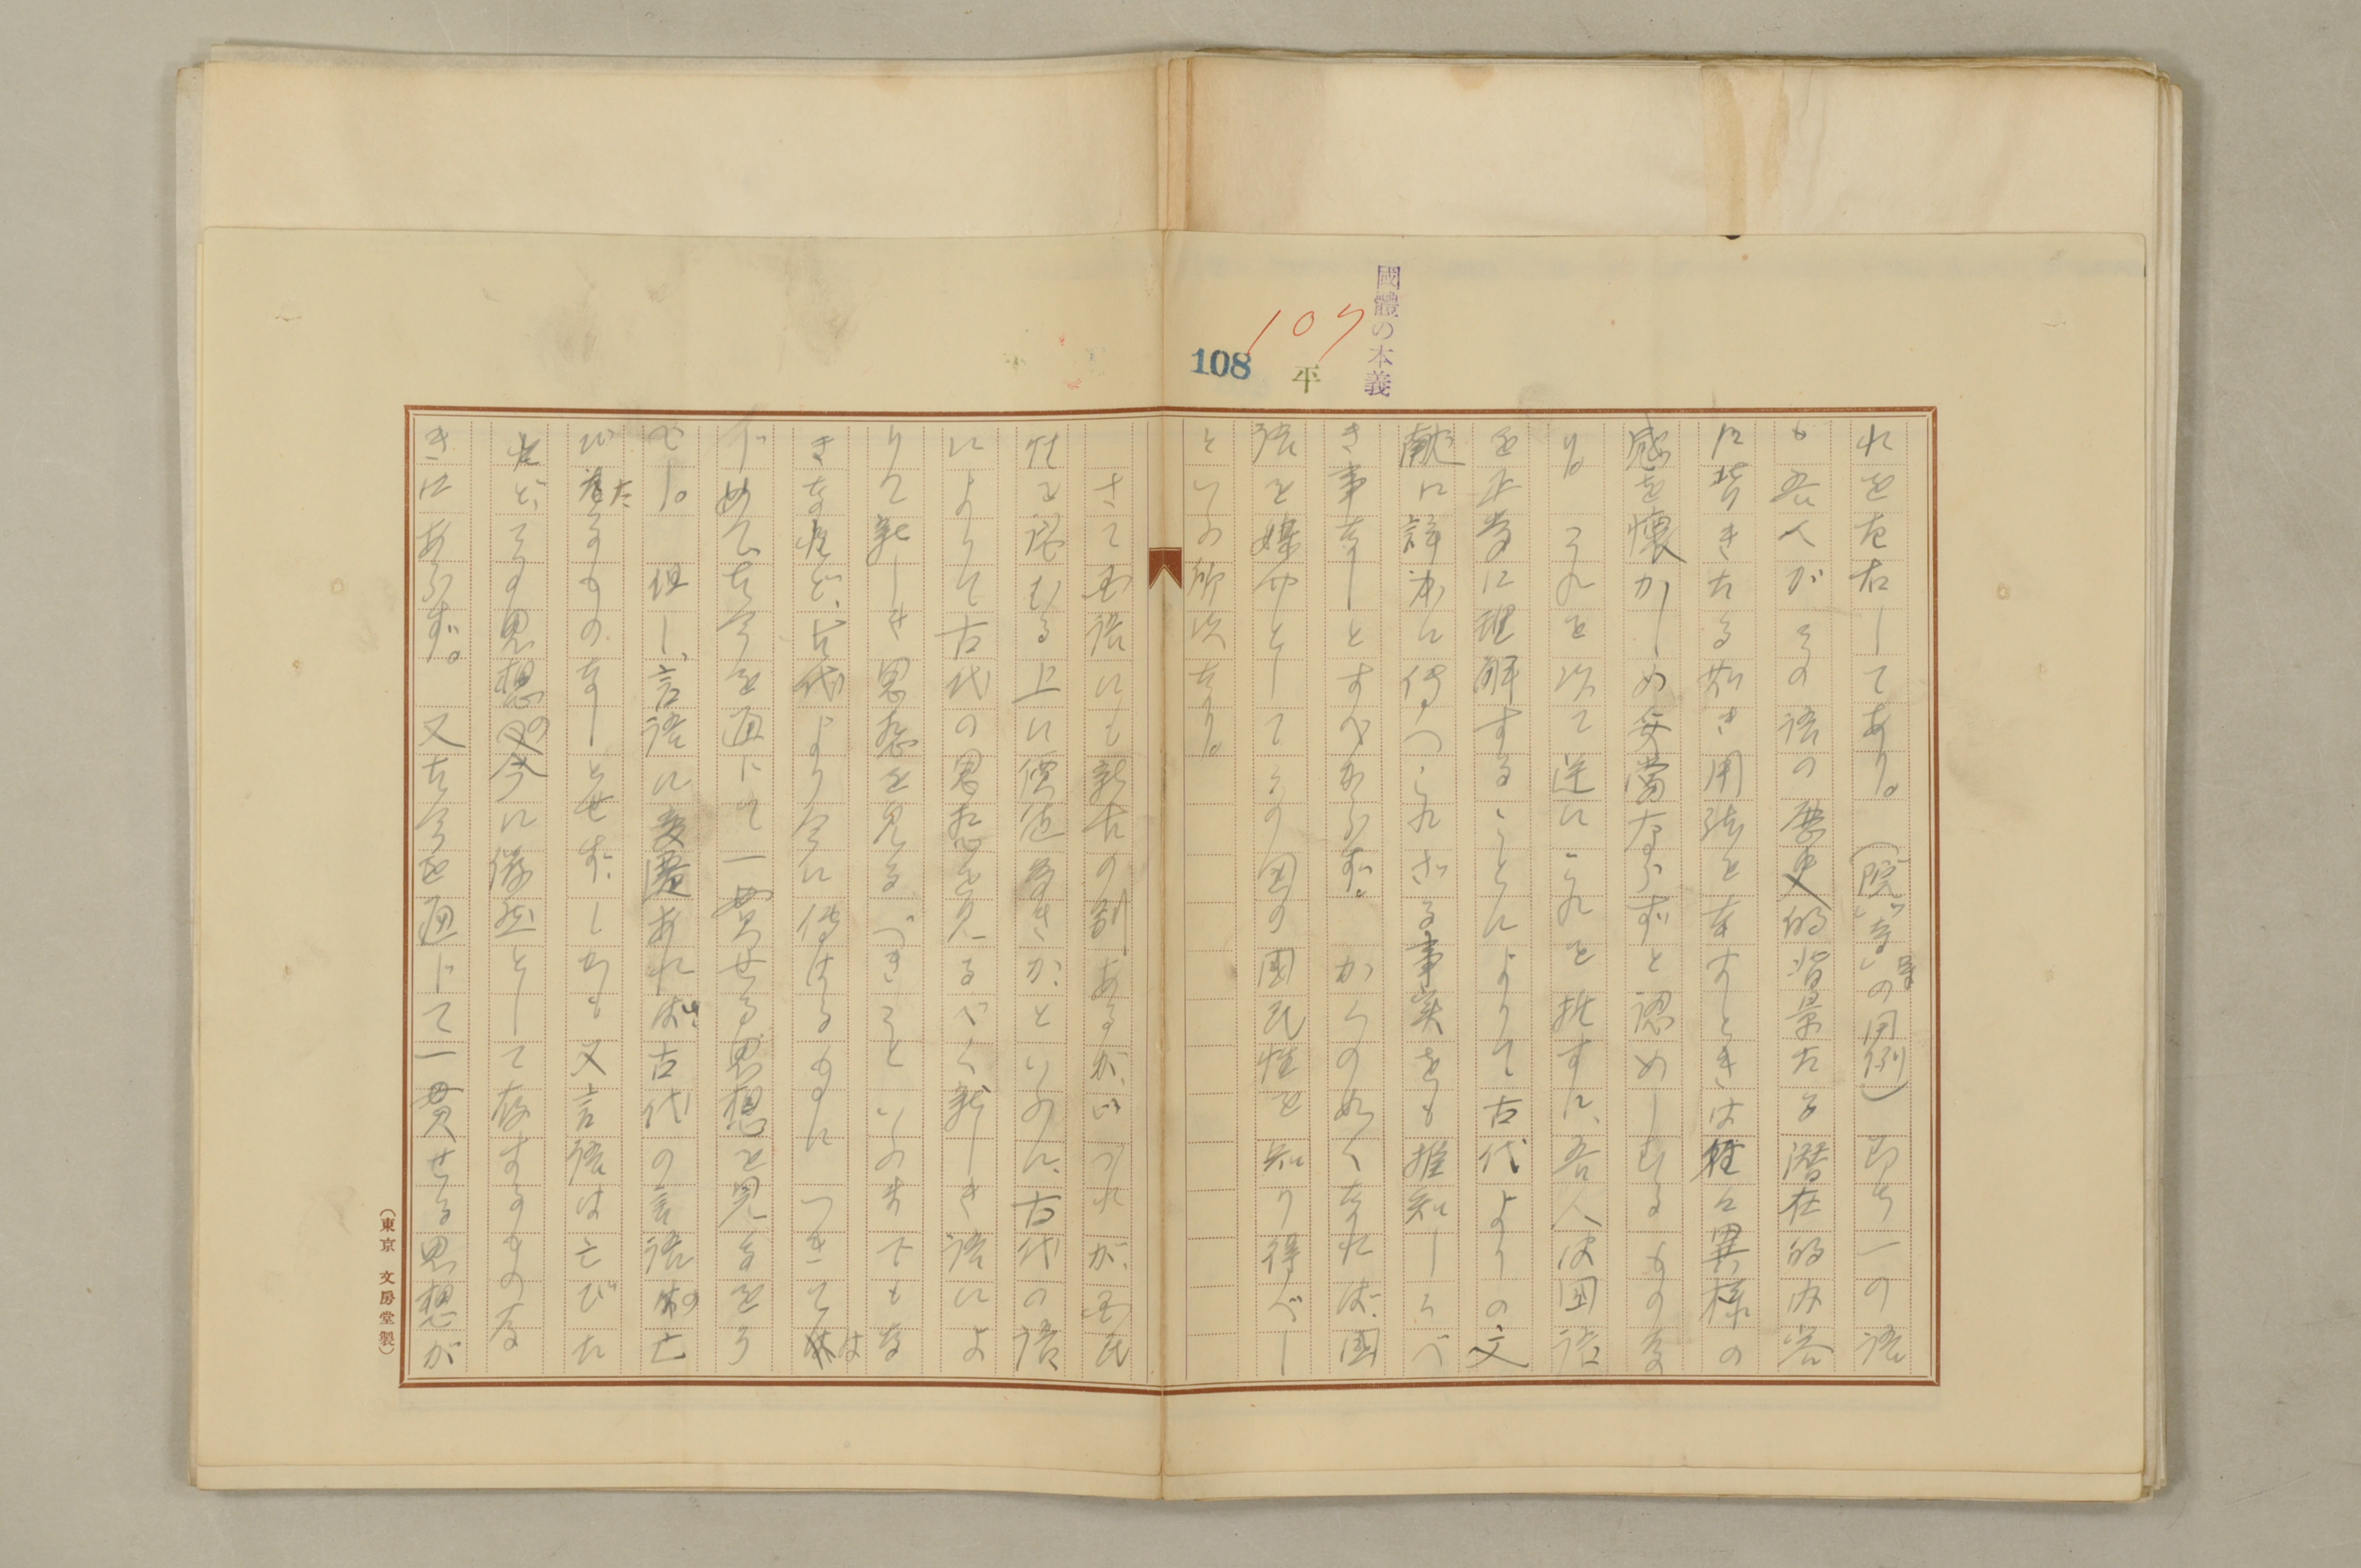 國體の本義
107
108
平
れを左右してあり。(「院」「寺」等の用例)即ち一の語
も吾人がその語の歴史的背景たる潜在的内容
に背きたる如き用法をなすときは往々異様の
感を懐かしめ妥當ならずと認めしむるものな
り。これを以て逆にこれを推すに、吾人は国語
を正當に理解することによりて古代よりの文
献に詳密に傳へられざる事実をも推知しうべ
き事なしとすべからず。かくの如くなれば、國
語を媒介としてその国の國民性を知り得べし
といふ所以なり。
さて国語にも新古の別あるが、いづれが、国民
性を認むる上に價値多きか、といふに、古代の語
によりて古代の思想を見るべく新しき語によ
りて新しき思想を見るべきこといふまでもな
きなれど、古代より今に傳はるものにつきては
じめて、古今を通じて一貫せる思想を見るをう
べし。但し、言語に変遷あれば、古代の言語の亡
びたるものなしとせず、しかも又言語は亡びた
れど、その思想の今に儼然として存するもの な
きにあらず。又古今を通じて一貫せる思想が
(東京 文房堂製)